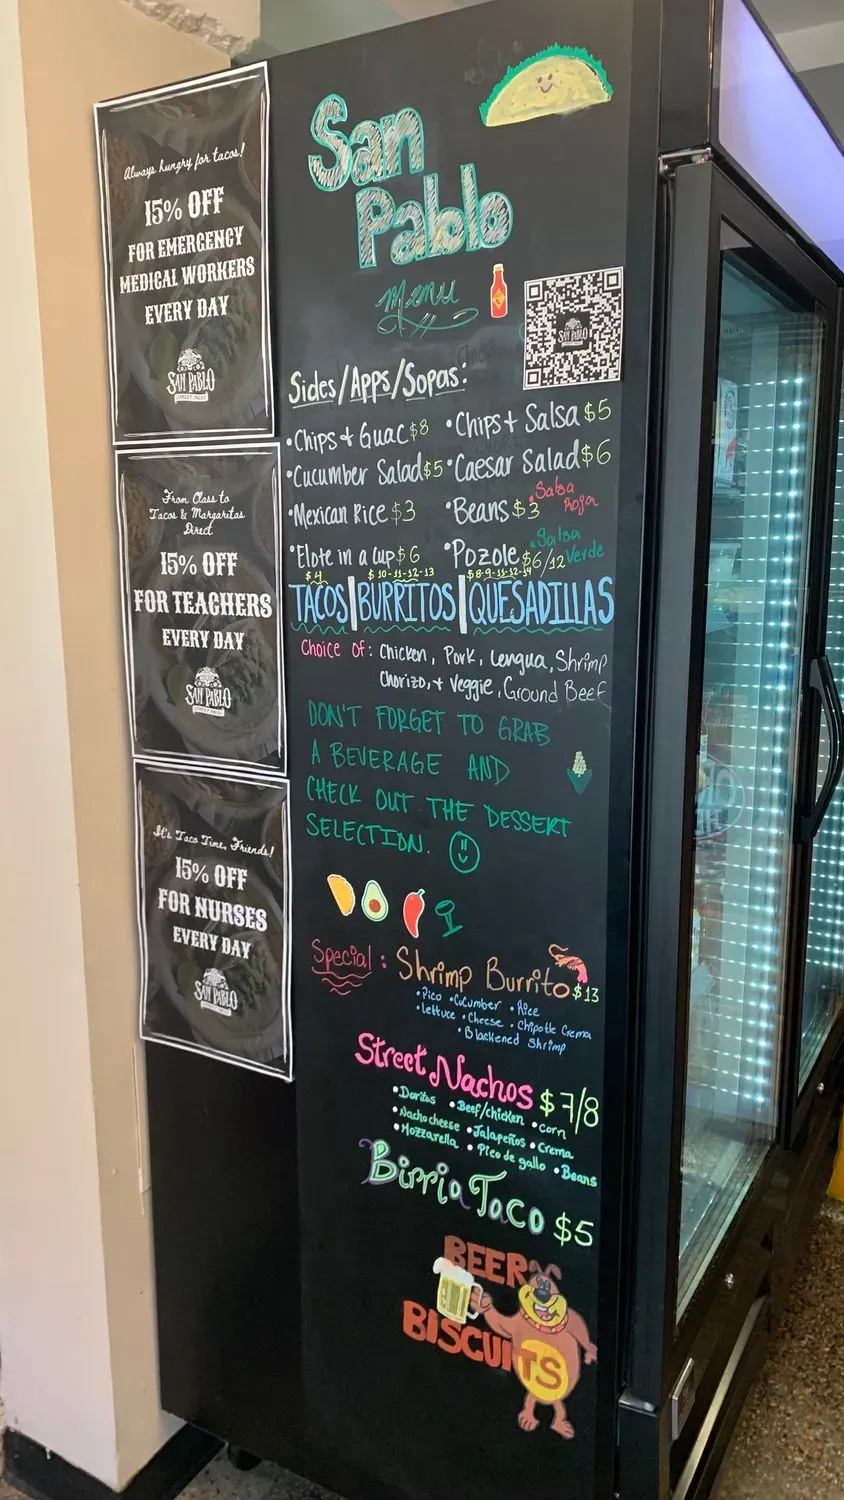 Always hungry for tacos!
15% OFF
FOR EMERGENCY
MEDICAL WORKERS
EVERY DAY
SAN PABLO
STREET TACOS
From Class to
Tacos & Margaritas
Direct
15% OFF
FOR TEACHERS
EVERY DAY
SAN PABLO
STREET TACOS
It's Taco Time, Friends!
15% OFF
FOR NURSES
EVERY DAY
SAN PABLO
STREET TACOS
San
Pablo
Menu
SAN PABLO
Sides/Apps/Sopas:
•Chips + Guac $8 •Chips + Salsa $5
•Cucumber Salad $5 •Caesar Salad $6
•Mexican Rice $3 •Beans $3 •Salsa Roja
•Elote in a cup $6 •Pozole $6/12 •Salsa Verde
$4 $10-11-12-13 $8-9-11-12-14
TACOS|BURRITOS|QUESADILLAS
Choice of: Chicken, Pork, Lengua, Shrimp
Chorizo, + Veggie, Ground Beef
DON'T FORGET TO GRAB
A BEVERAGE AND
CHECK OUT THE DESSERT
SELECTION.
Special: Shrimp Burrito $13
•Pico •Cucumber •Rice
•Lettuce •Cheese •Chipotle Crema
•Blackened Shrimp
Street Nachos $7/8
•Doritos •Beef/chicken •Corn
•Nacho cheese •Jalapeños •Crema
•Mozzarella •Pico de gallo •Beans
Birria Taco $5
BEER
BISCUITS